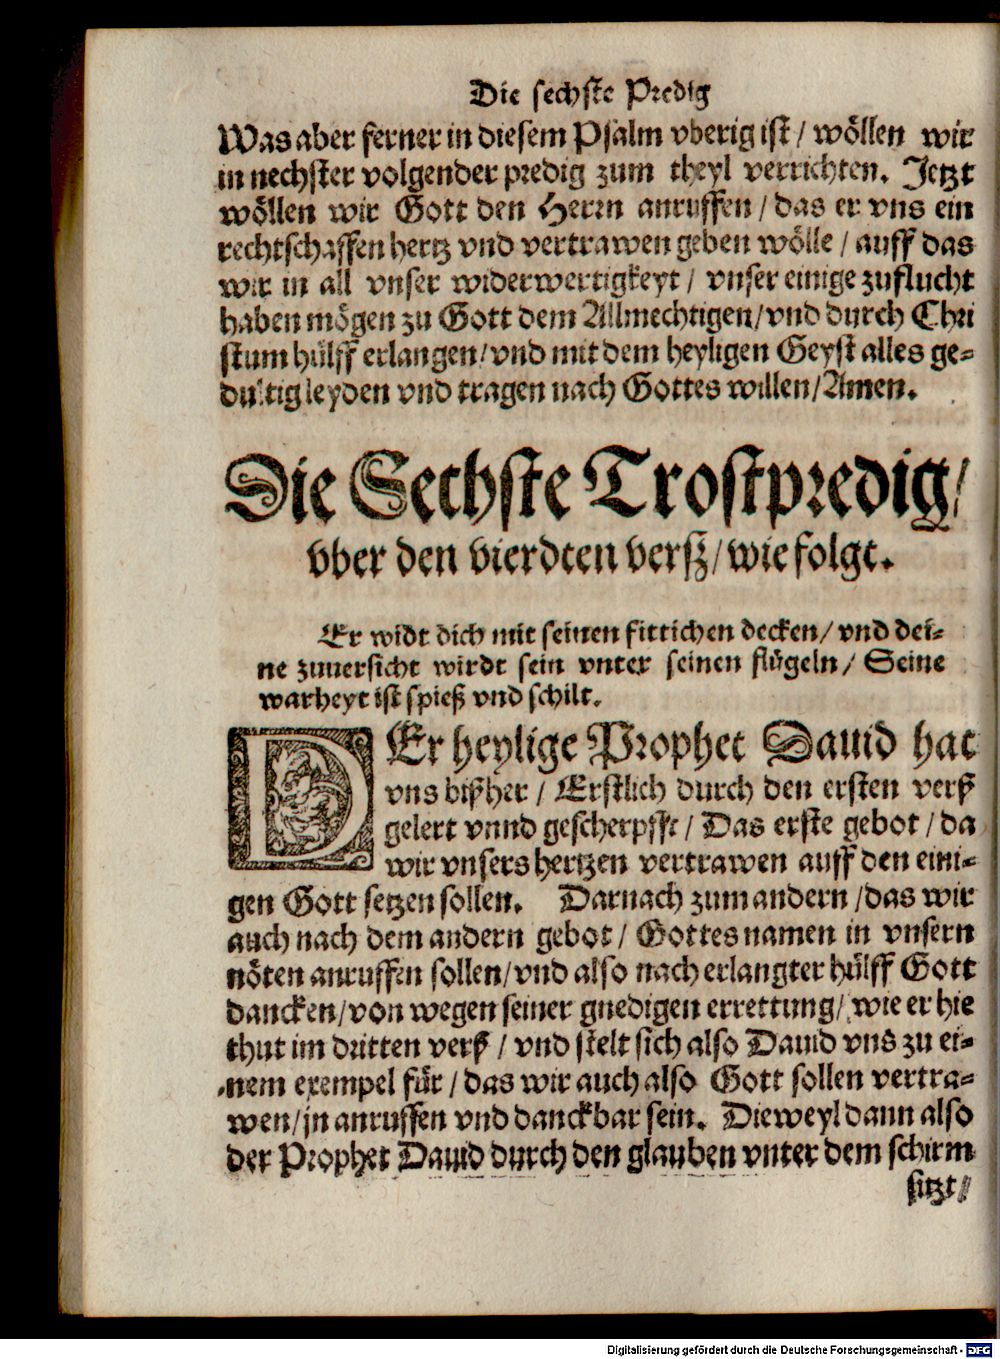 Die sechste Predig
Was aber ferner in diesem Psalm vberig ist / wöllen wir
in nechster volgender predig zum theyl verrichten. Jetzt
wöllen wir Gott den Herrn anruffen / das er vns ein
rechtschaffen hertz vnd vertrawen geben wölle / auff das
wir in all vnser widerwertigkeyt / vnser einige zuflucht
haben mögen zu Gott dem Allmechtigen / vnd durch Chri
stum hülff erlangen / vnd mit dem heyligen Geyst alles ge-
dultig leyden vnd tragen nach Gottes willen / Amen.
Die Sechste Trostpredig /
vber den vierdten versz / wie folgt.
Er widt dich mit seinen fittichen decken / vnd dei-
ne zuuersicht wirdt sein vnter seinen flügeln / Seine
warheyt ist spieß vnd schilt.
DEr heylige Prophet Dauid hat
vns bißher / Erstlich durch den ersten verß
gelert vnnd gescherpfft / Das erste gebot / da
wir vnsers hertzen vertrawen auff den eini-
gen Gott setzen sollen. Darnach zum andern / das wir
auch nach dem andern gebot / Gottes namen in vnsern
nöten anruffen sollen / vnd also nach erlangter hülff Gott
dancken / von wegen seiner gnedigen errettung / wie er hie
thut im dritten verß / vnd stelt sich also Dauid vns zu ei-
nem exempel für / das wir auch also Gott sollen vertra-
wen / jn anruffen vnd danckbar sein. Dieweyl dann also
der Prophet Dauid durch den glauben vnter dem schirm
sitzt /
Digitalisierung gefördert durch die Deutsche Forschungsgemeinschaft - DFG